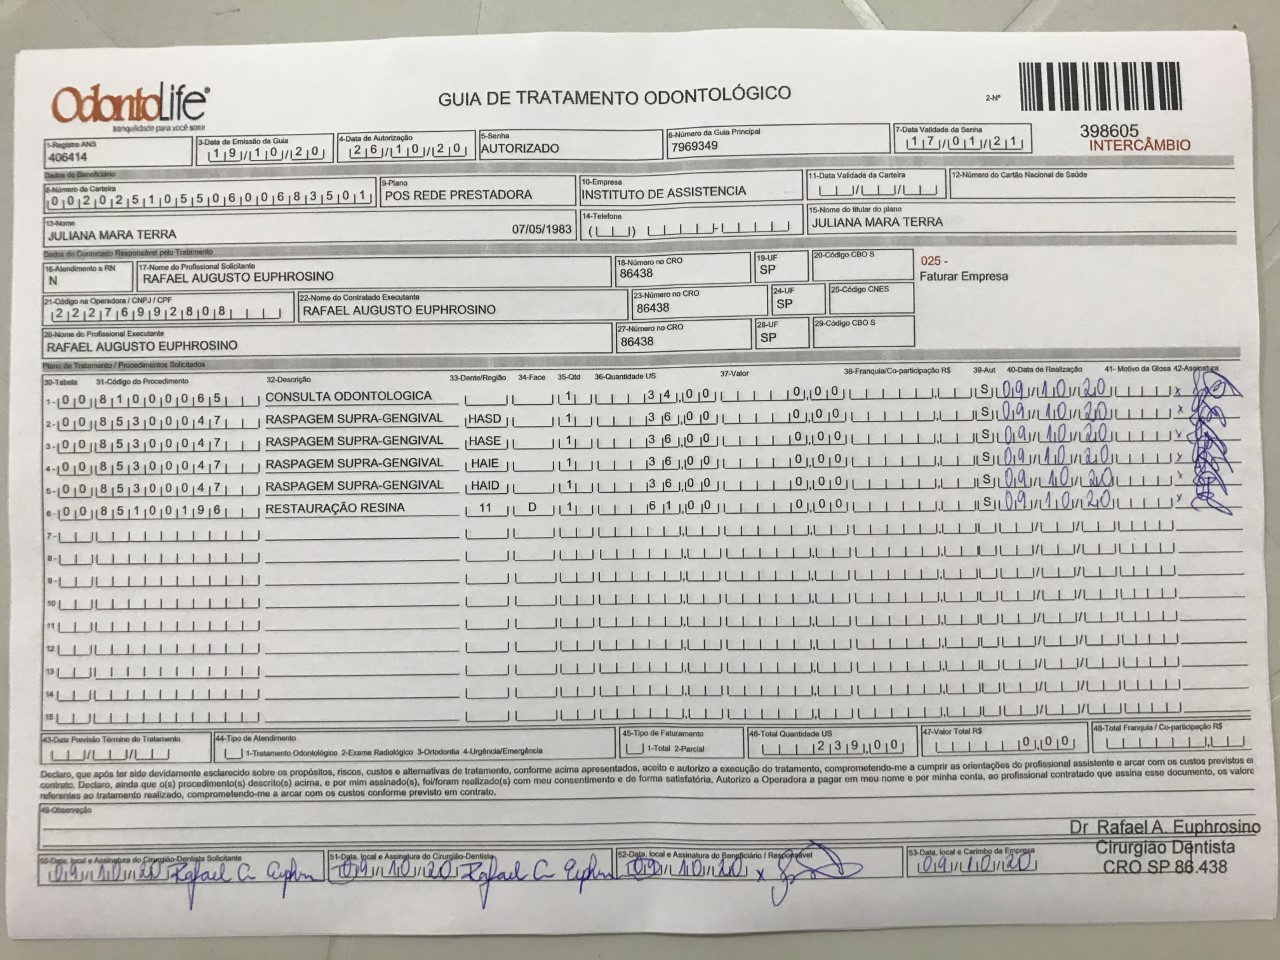 OdontoLife®
tranquilidade para você sorrir
GUIA DE TRATAMENTO ODONTOLÓGICO
2-Nº
398605
INTERCÂMBIO
1-Registro ANS 3-Data de Emissão da Guia 4-Data de Autorização 5-Senha 6-Número da Guia Principal 7-Data Validade da Senha
406414 19/10/20 26/10/20 AUTORIZADO 7969349 17/01/21
Dados do Beneficiário
8-Número da Carteira 9-Plano 10-Empresa 11-Data Validade da Carteira 12-Número do Cartão Nacional de Saúde
00202510550600683501 POS REDE PRESTADORA INSTITUTO DE ASSISTENCIA
13-Nome 14-Telefone 15-Nome do titular do plano
JULIANA MARA TERRA 07/05/1983 JULIANA MARA TERRA
Dados do Contratado Responsável pelo Tratamento
16-Atendimento a RN 17-Nome do Profissional Solicitante 18-Número no CRO 19-UF 20-Código CBO S
N RAFAEL AUGUSTO EUPHROSINO 86438 SP
025 -
Faturar Empresa
21-Código na Operadora / CNPJ / CPF 22-Nome do Contratado Executante 23-Número no CRO 24-UF 25-Código CNES
22276992808 RAFAEL AUGUSTO EUPHROSINO 86438 SP
26-Nome do Profissional Executante 27-Número no CRO 28-UF 29-Código CBO S
RAFAEL AUGUSTO EUPHROSINO 86438 SP
Plano de Tratamento / Procedimentos Solicitados
30-Tabela 31-Código do Procedimento 32-Descrição 33-Dente/Região 34-Face 35-Qtd 36-Quantidade US 37-Valor 38-Franquia/Co-participação R$ 39-Aut 40-Data de Realização 41- Motivo da Glosa 42-Assinatura
1- 00 81000065 CONSULTA ODONTOLOGICA 1 34,00 0,00 S 09/10/20 x
2- 00 85300047 RASPAGEM SUPRA-GENGIVAL HASD 1 36,00 0,00 S 09/10/20 x
3- 00 85300047 RASPAGEM SUPRA-GENGIVAL HASE 1 36,00 0,00 S 09/10/20 x
4- 00 85300047 RASPAGEM SUPRA-GENGIVAL HAIE 1 36,00 0,00 S 09/10/20 x
5- 00 85300047 RASPAGEM SUPRA-GENGIVAL HAID 1 36,00 0,00 S 09/10/20 x
6- 00 85100196 RESTAURAÇÃO RESINA 11 D 1 61,00 0,00 S 09/10/20 x
7-
8-
9-
10
11
12
13
14
15
43-Data Previsão Término do Tratamento 44-Tipo de Atendimento 45-Tipo de Faturamento 46-Total Quantidade US 47-Valor Total R$ 48-Total Franquia / Co-participação R$
1-Tratamento Odontológico 2-Exame Radiológico 3-Ortodontia 4-Urgência/Emergência 1-Total 2-Parcial 239,00 0,00
Declaro, que após ter sido devidamente esclarecido sobre os propósitos, riscos, custos e alternativas de tratamento, conforme acima apresentados, aceito e autorizo a execução do tratamento, comprometendo-me a cumprir as orientações do profissional assistente e arcar com os custos previstos em
contrato. Declaro, ainda que o(s) procedimento(s) descrito(s) acima, e por mim assinado(s), foi/foram realizado(s) com meu consentimento e de forma satisfatória. Autorizo a Operadora a pagar em meu nome e por minha conta, ao profissional contratado que assina esse documento, os valore
referentes ao tratamento realizado, comprometendo-me a arcar com os custos conforme previsto em contrato.
49-Observação
Dr Rafael A. Euphrosino
Cirurgião Dentista
CRO SP 86.438
50-Data, local e Assinatura do Cirurgião-Dentista Solicitante 51-Data, local e Assinatura do Cirurgião-Dentista 52-Data, local e Assinatura do Beneficiário / Responsável 53-Data, local e Carimbo da Empresa
09/10/20 Rafael A Euphn 09/10/20 Rafael A Euphn 09/10/20 x 09/10/20